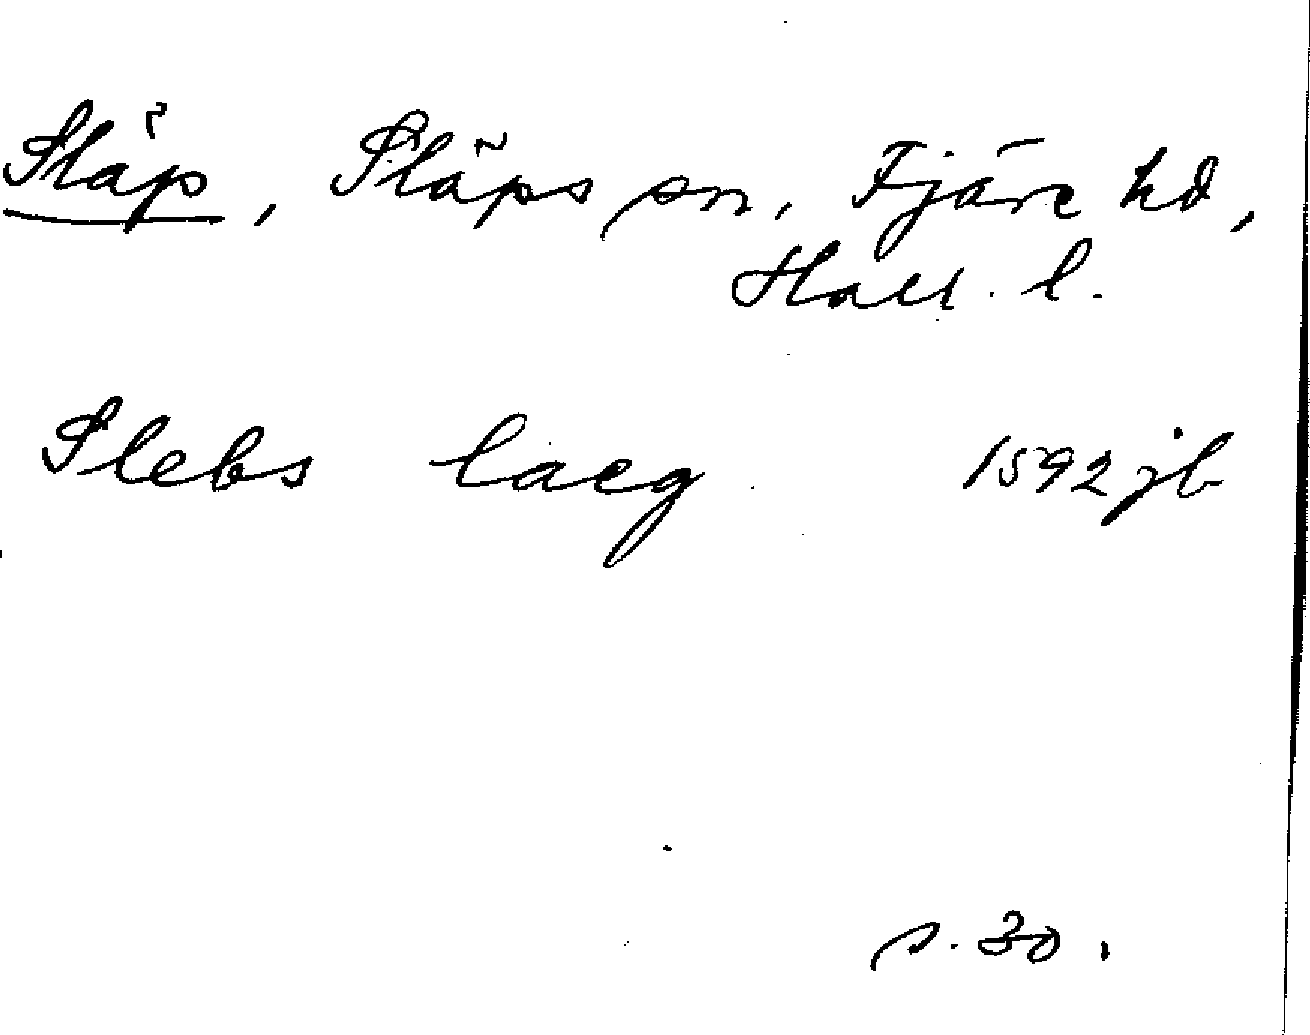 Släp, Släps sn, Fjäre hd,
Hall. l.
Slebs laeg 1592 jb
s. 30.